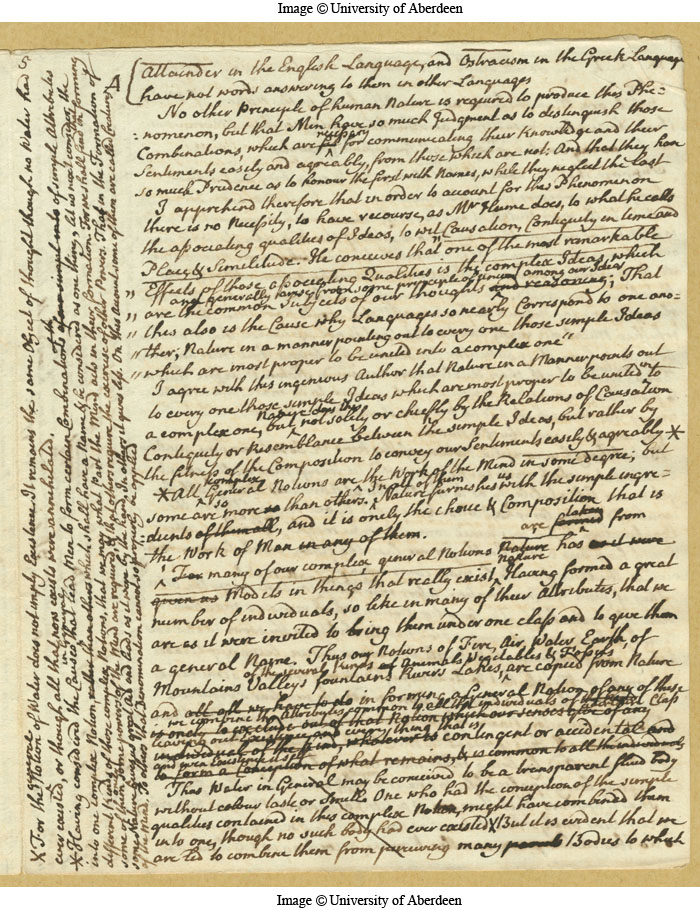 Image © University of Aberdeen
5
Attainder in the English Language, and Ostracism in the Greek Language
have not words answering to them in other Languages
No other Principle of human Nature is required to produce this Phe=
=nomenon, but that Men have so much Judgment as to distinguish those
necessary
Combinations, which are fit for communicating their knowledge and their
Sentiments easily and agreably, from those which are not: And that they have
so much Prudence as to honour the first with Names, while they neglect the last
I apprehend therefore that in order to account for this Phenomenon
there is no Necessity, to have recourse, as Mr Hume does, to what he calls
the associating qualities of Ideas, to wit Causation, Contiguity in time and
Place, & Similitude. He conceives that "one of the most remarkable
"Effects of those associating Qualities is the complex Ideas, which
and generally arise from some principle of union among our Ideas
"are the common subjects of our thoughts and reasoning; That
"this also is the Cause why Languages so nearly Correspond to one ano=
"ther; Nature in a manner pointing out to every one those simple Ideas
"which are most proper to be united into a complex one"
I agree with this ingenious Author that Nature in a Manner points out
to every one those simple Ideas which are most proper to be united to
Nature does this
a complex one, but not solely or chiefly by the Relations of Causation
Contiguity or Resemblance between the simple Ideas, but rather by
the fitness of the Composition to convey our Sentiments easily & agreably X
complex
X All General Notions are the Work of the Mind in some degree; but
so all of them us
some are more so than others. Nature furnishes with the simple ingre=
dients of them all, and it is onely the choice & Composition that is
the Work of Man in any of them. are taken from
For many of our complex general Notions Nature has as it were
Nature
given us Models in things that really exist. Having formed a great
number of individuals, so like in many of their Attributes, that we
are as it were invited to bring them under one class and to give them
a general Name. Thus our Notions of Fire, Air, Water Earth, of
of the several kinds of Animals Vegetables & Fossils
Mountains Valleys fountains Rivers Lakes, are copied from Nature
and all all we have to do in forming a General Notion of any of these
we combine the Attributes common to all the individuals of Class
leaving out existence and every thing that is
is onely to exclude out of that Notion which our senses give of any
individual of the kind, whatever is contingent or accidental and
to form a Conception of what remains, & is common to all the individuals
Thus Water in General may be conceived to be a transparent fluid body
without colour taste or smell. One who had the conception of the simple
qualities contained in this complex Notion, might have combined them
into one, though no such body had ever existed X But it is evident that we
are led to combine them from perceiving many Bodies to which
X For the Notion of Water does not imply Existence. It remains the same Object of thought though no Water had
ever existed, or though all that now exists were annihilated.
X Having considered the Causes that lead Men to form certain Combinations of simple Attributes
into one complex Notion rather than others which shall have a Name & be considered as one thing; let us now consider the
different kinds of those complex Notions, that we may see what Part the Mind acts in their formation. For we shall find in forming
some of them some powers of the Mind are required that others require the exercise of other Powers. That in the Formation of
some Nature gives more aid and leads us as it were by the hand, In others it gives less. On this Account some of them are called Creatures
of the Mind. To others that Denomination cannot so properly be applied
Image © University of Aberdeen